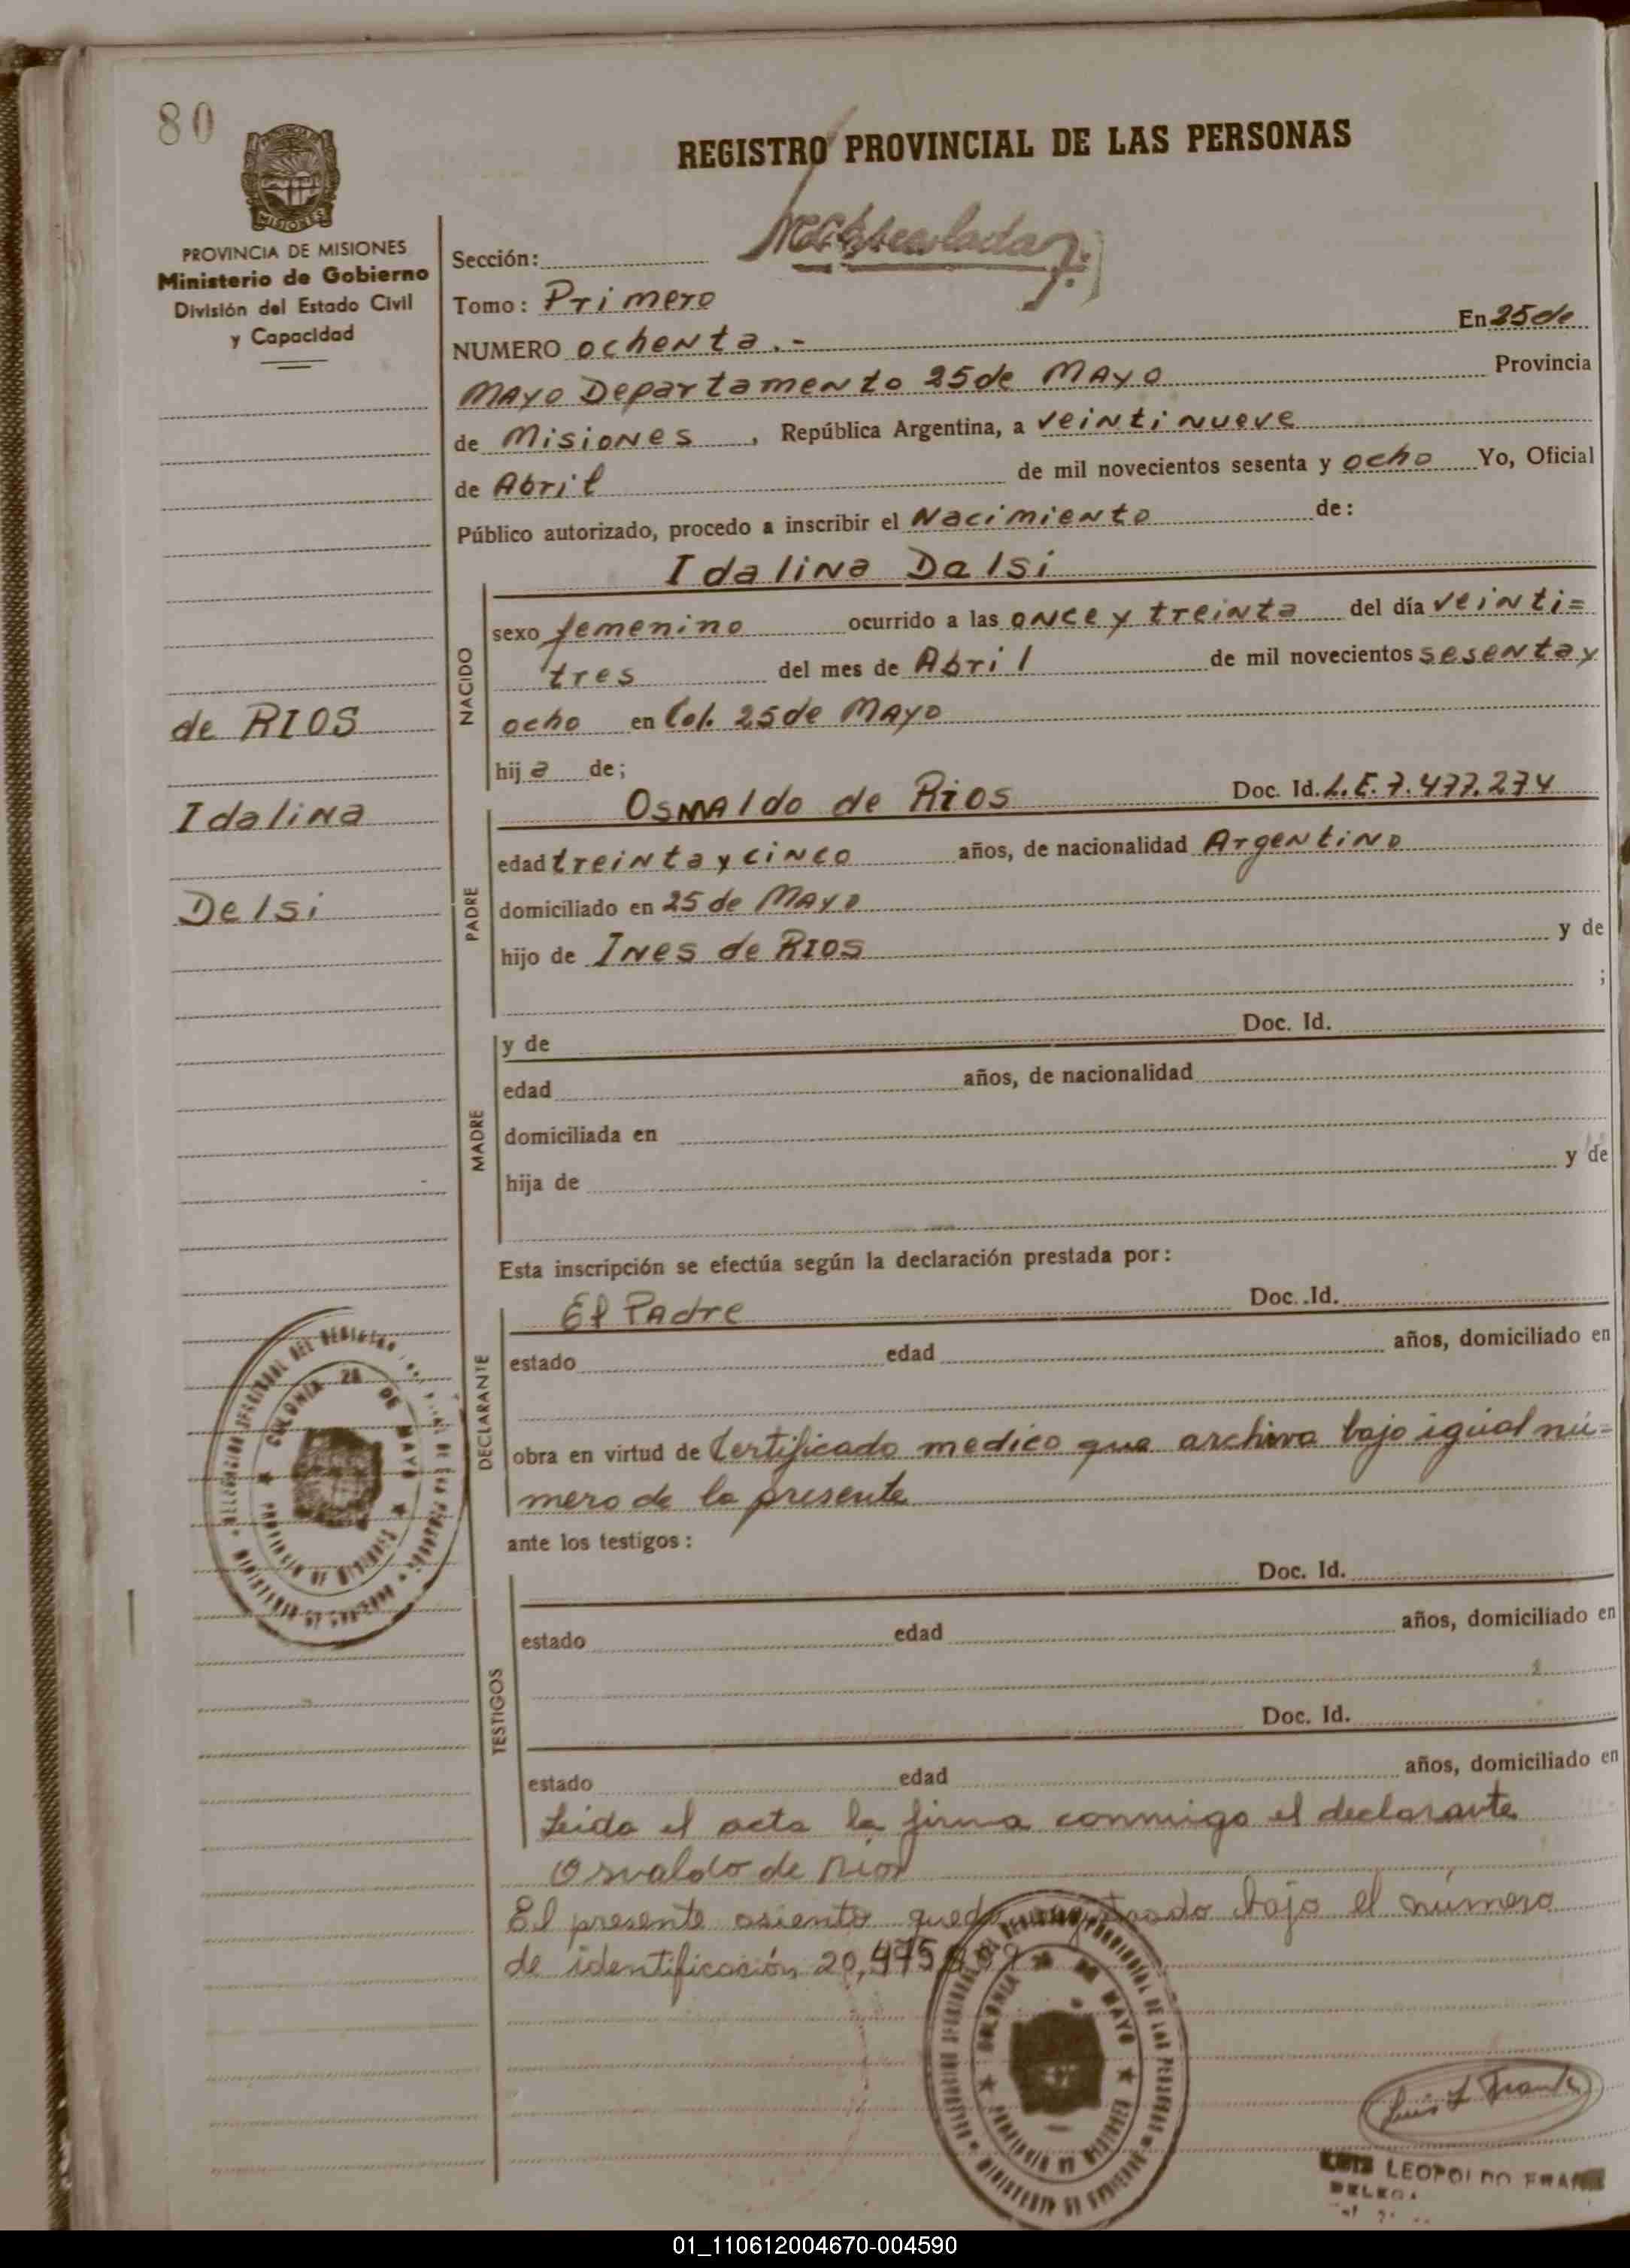 80
REGISTRO PROVINCIAL DE LAS PERSONAS
MISIONES
PROVINCIA DE MISIONES
Ministerio de Gobierno
División del Estado Civil
y Capacidad
Sección:
Tomo: Primero
NUMERO ochenta.- En 25 de
Mayo Departamento 25 de Mayo Provincia
de Misiones, República Argentina, a veintinueve
de Abril de mil novecientos sesenta y ocho Yo, Oficial
Público autorizado, procedo a inscribir el Nacimiento de:
Idalina Dalsi
NACIDO
sexo femenino ocurrido a las once y treinta del día veinti=
tres del mes de Abril de mil novecientos sesenta y
ocho en Col. 25 de Mayo
hija de;
de RIOS
Idalina
Delsi
PADRE
Osmaldo de Rios Doc. Id. L.E. 7.477.274
edad treinta y cinco años, de nacionalidad Argentino
domiciliado en 25 de Mayo
hijo de Ines de Rios y de
;
MADRE
y de Doc. Id.
edad años, de nacionalidad
domiciliada en
hija de y de
Esta inscripción se efectúa según la declaración prestada por:
DECLARANTE
El Padre Doc. Id.
estado edad años, domiciliado en
obra en virtud de Certificado medico que archivo bajo igual nú=
mero de la presente
ante los testigos:
TESTIGOS
Doc. Id.
estado edad años, domiciliado en
Doc. Id.
estado edad años, domiciliado en
Leida el acta la firma conmigo el declarante
Osvaldo de Rios
El presente asiento queda bajo el número
de identificación 20,475
COLONIA 25 DE MAYO
PROVINCIA DE MISIONES
COLONIA 25 DE MAYO
PROVINCIA DE MISIONES
Luis L Frank
LUIS LEOPOLDO
01_110612004670-004590